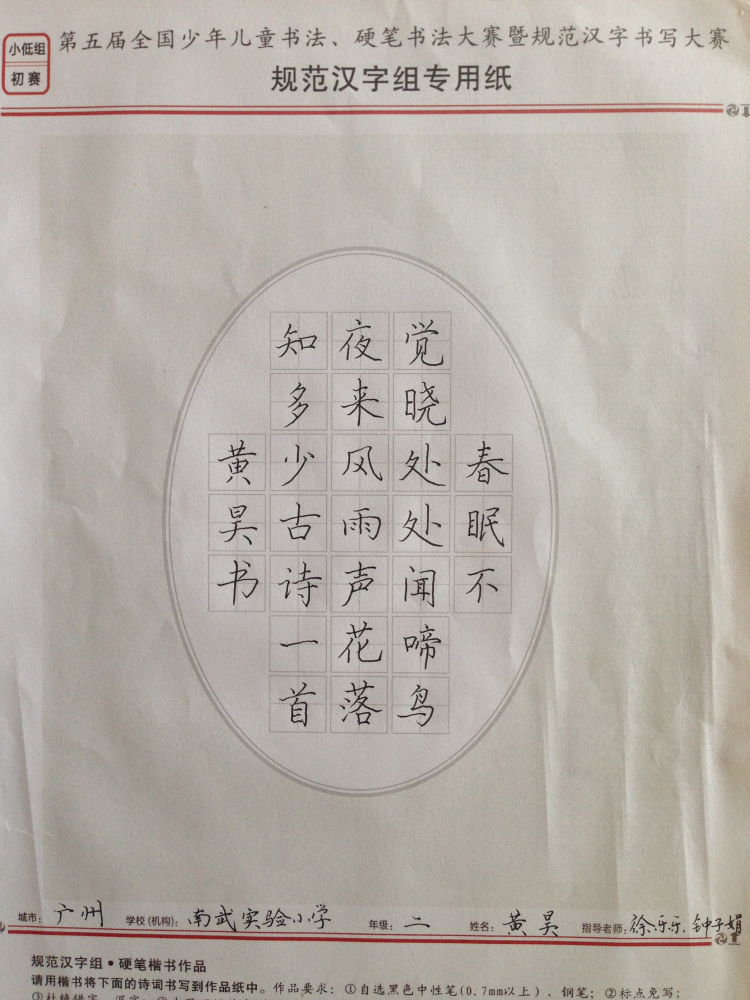 小低组
初赛
第五届全国少年儿童书法、硬笔书法大赛暨规范汉字书写大赛
规范汉字组专用纸
春眠不
觉晓处处闻啼鸟
夜来风雨声花落
知多少古诗一首
黄昊书
城市：广州 学校(机构)：南武实验小学 年级：二 姓名：黄昊 指导老师：徐乐乐、钟子娟
规范汉字组·硬笔楷书作品
请用楷书将下面的诗词书写到作品纸中。作品要求：①自选黑色中性笔(0.7mm以上)、钢笔；②标点免写；